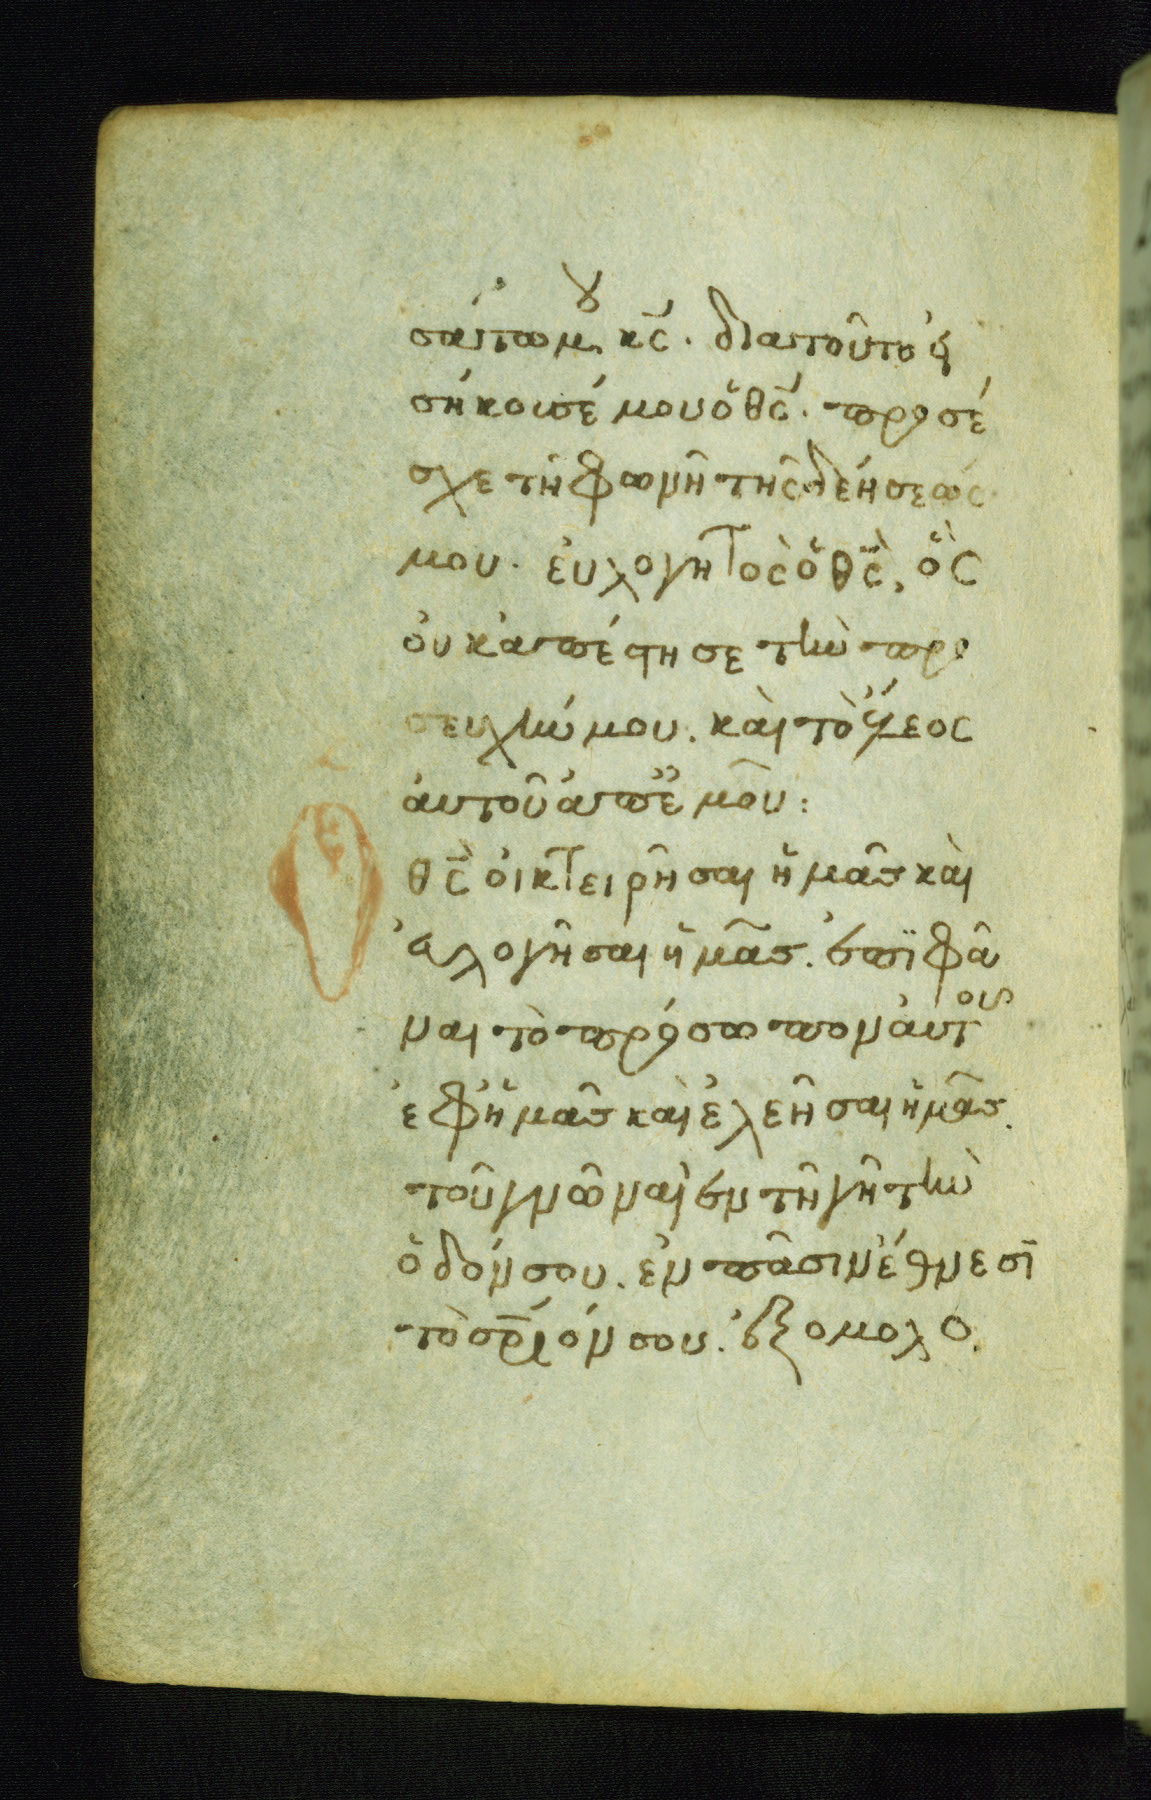 σάτω μου κς̄. διατοῦτο εἰ
σήκουσέ μου ὁ θς̄. προσέ
σχε τῆ φωνῆ τῆς δεήσεώς
μου. ἐυλογητὸς ὁ θς̄, ὃς
ὀυκ ἀπέστησε τὴν προ
σευχήν μου. καὶ τὸ ἔλεος
ἀυτοῦ ἀπ ἐμοῦ:
Ο θς̄ ὀικτειρῆσαι ἡμᾶς καὶ
ἐυλογῆσαι ἡμᾶς. ἐπιφᾶ
ναι τὸ πρόσωπον ἀυτοῦ
ἐφ ἡμᾶς καὶ ἐλεῆσαι ἡμᾶς.
τοῦ γνῶναι ἐν τῆ γῆ τὴν
ὁδόν σου. ἐν πᾶσιν ἔθνεσι
τὸ σρ̄ιόν σου. ἐξομολο